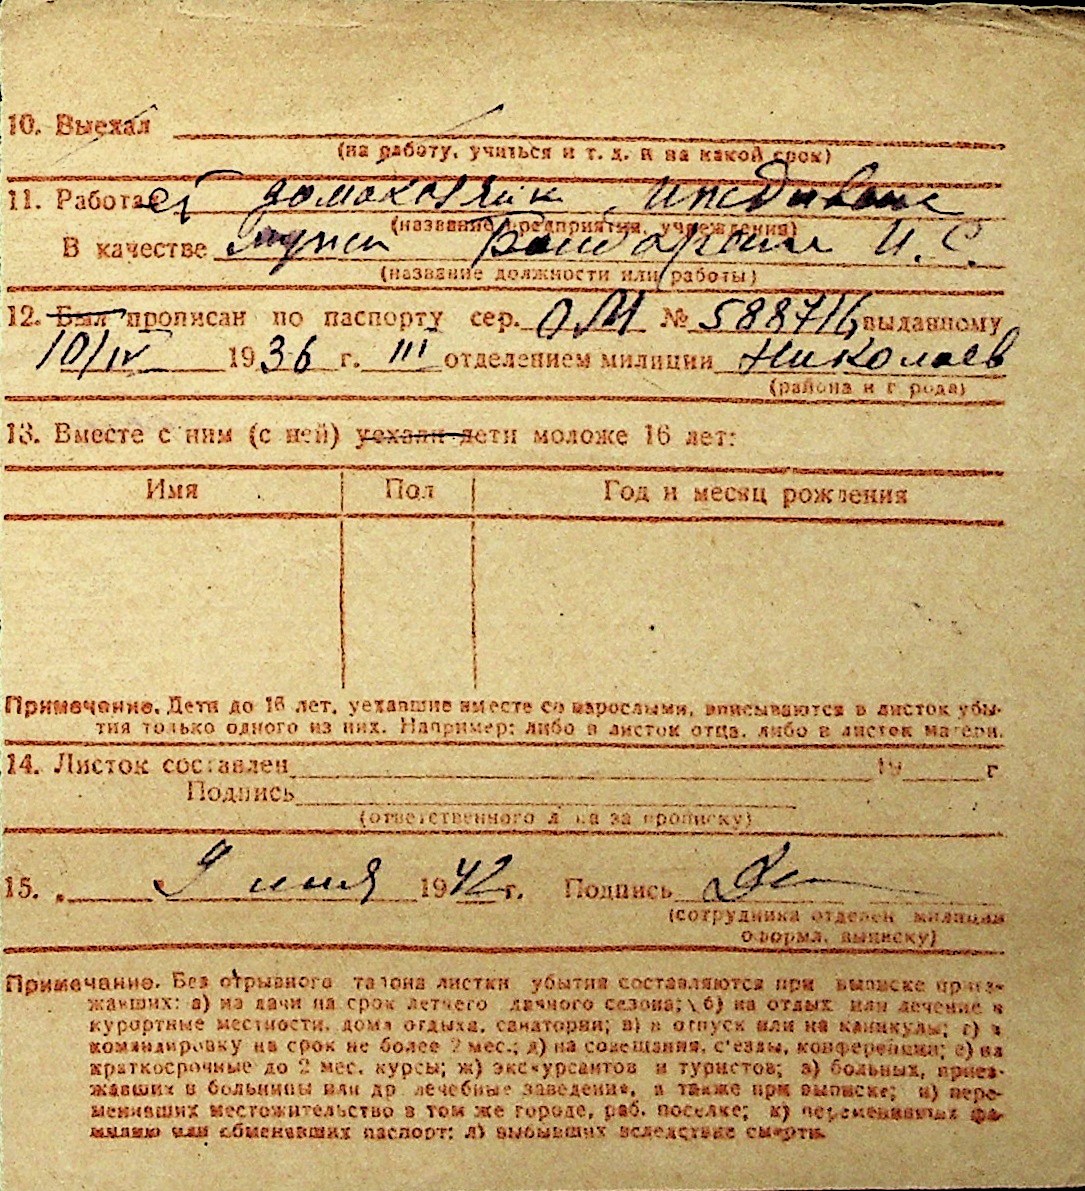 10. Выехал
(на работу, учиться и т. д. и на какой срок)
11. Работает домохозяйк, иждивенс
(название предприятия, учреждения)
В качестве мужа И. С.
(название должности или работы)
12. Был прописан по паспорту сер. ОМ № 588716, выданному
10/IV 1936 г. III отделением милиции Николаев
(района и города)
13. Вместе с ним (с ней) уехали дети моложе 16 лет:
Имя Пол Год и месяц рождения
Примечание. Дети до 16 лет, уехавшие вместе со взрослыми, вписываются в листок убы-
тия только одного из них. Например: либо в листок отца, либо в листок матери.
14. Листок составлен 19 г
Подпись
(ответственного лица за прописку)
15. 9 июня 1942 г. Подпись
(сотрудника отделен милиции
оформл. выписку)
Примечание. Без отрывного талона листки убытия составляются при выписке приез-
жавших: а) из дачи на срок летнего дачного сезона; б) на отдых или лечение в
курортные местности, дома отдыха, санатории; в) в отпуск или на каникулы; г) в
командировку на срок не более 2 мес.; д) на совещания, с'езды, конференции; е) на
краткосрочные до 2 мес. курсы; ж) экскурсантов и туристов; з) больных, приез-
жавших в больницы или др лечебные заведения, а также при выписке; и) пере-
менивших местожительство в том же городе, раб. поселке; к) переменивших фа-
милию или обменявших паспорт; л) выбывших вследствие смерти.